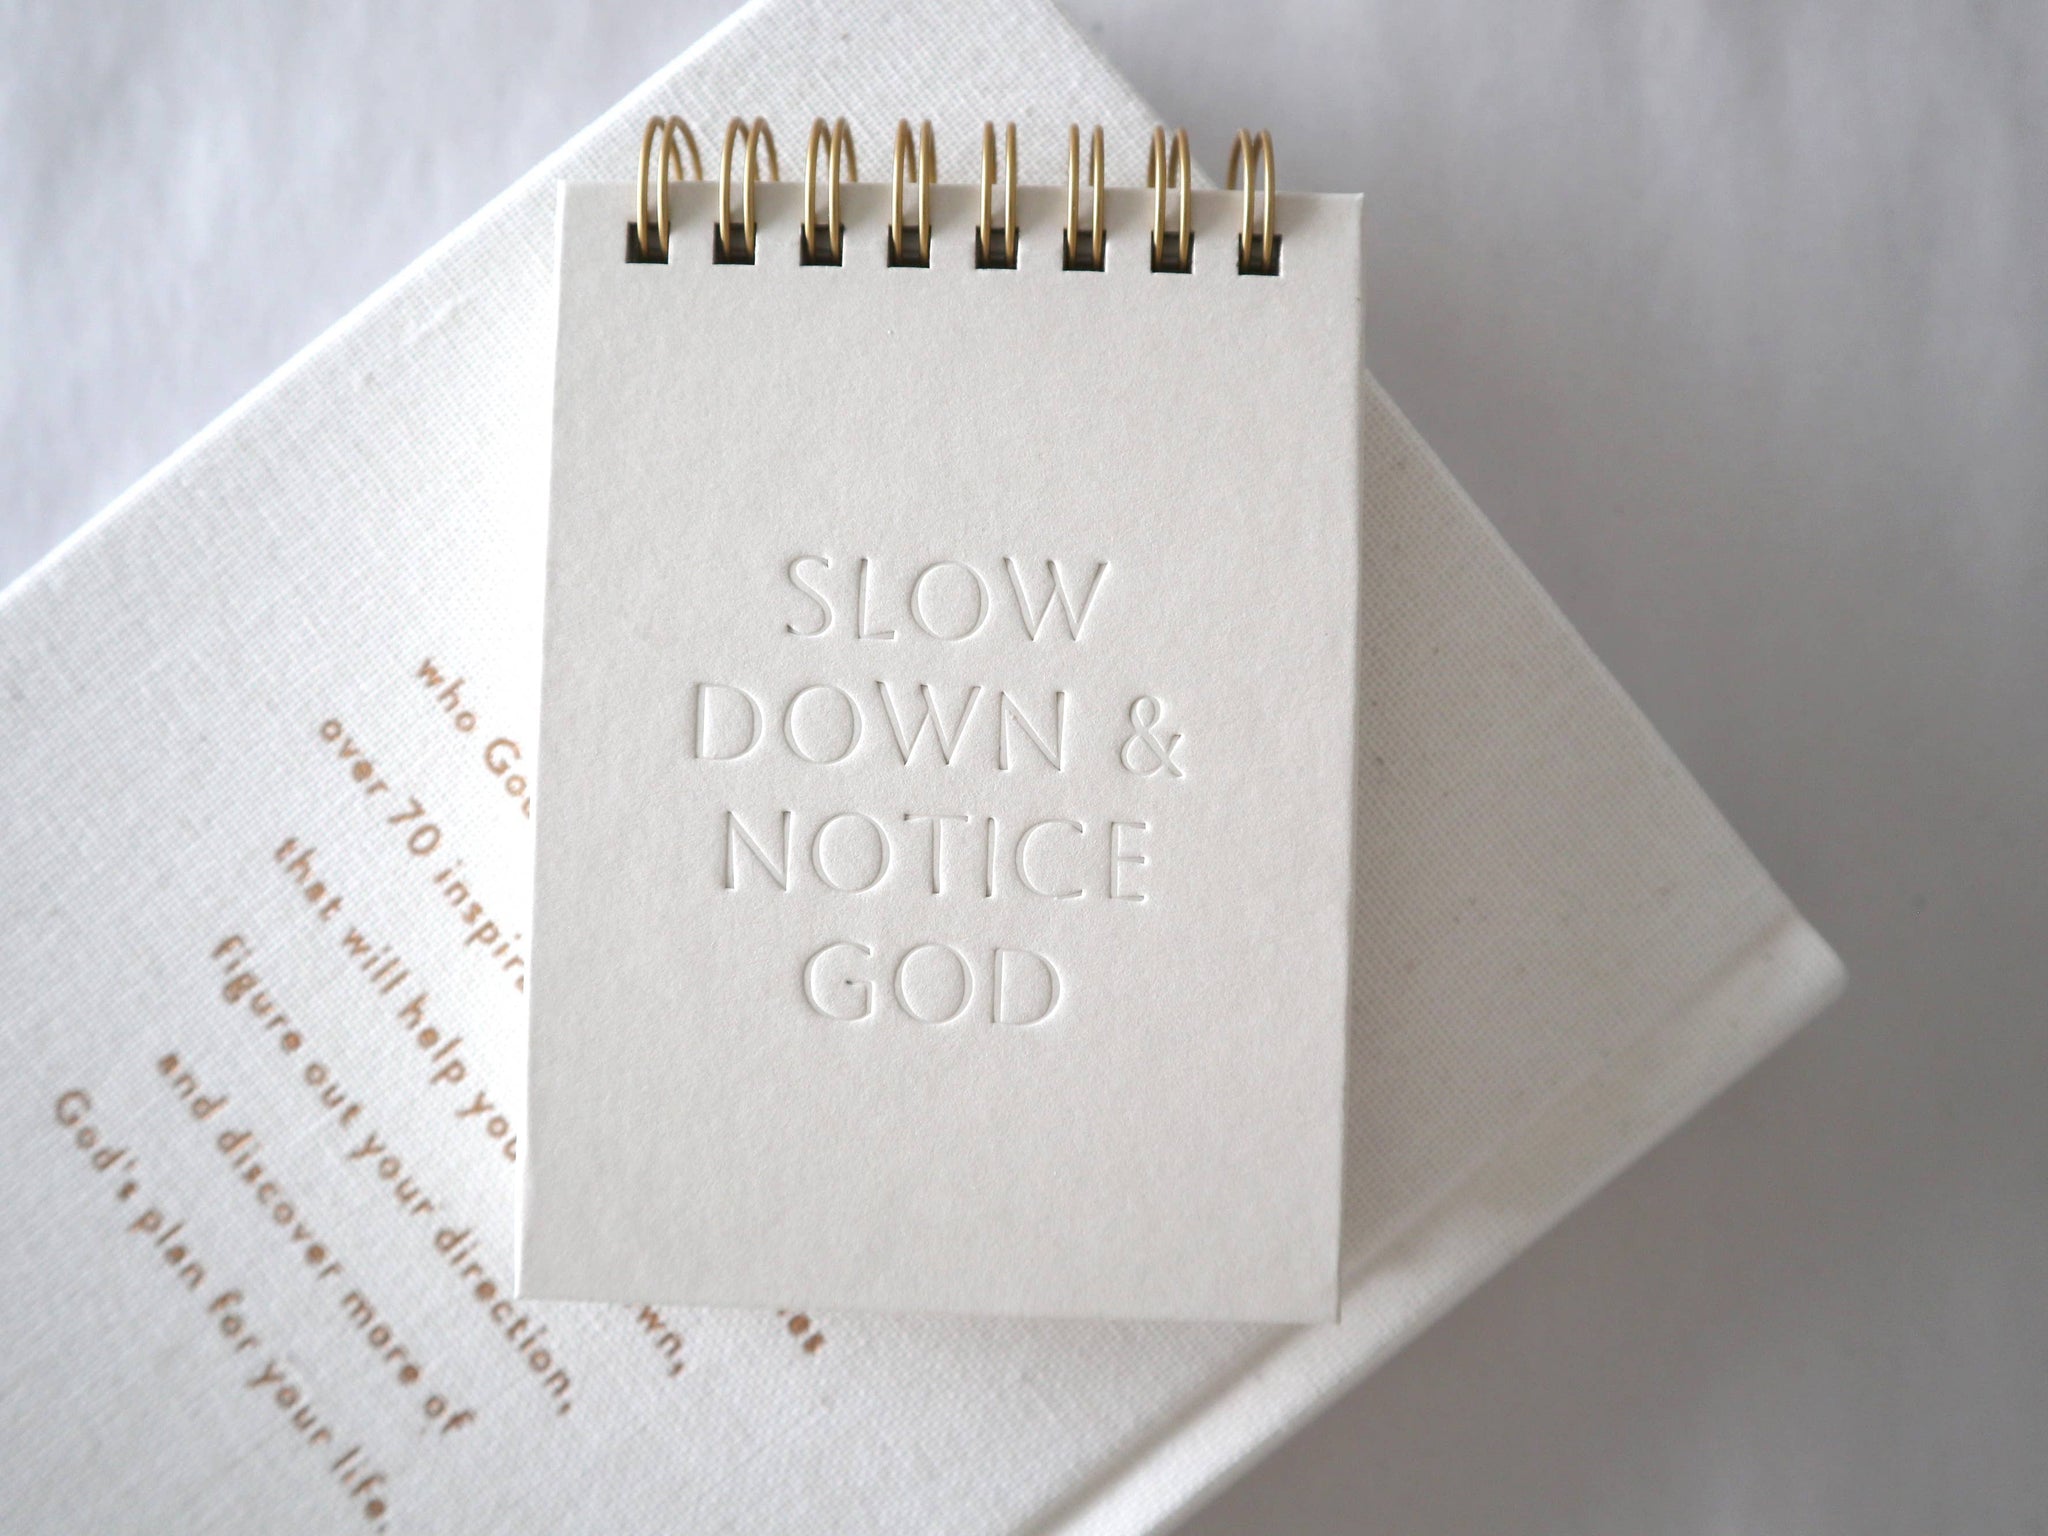 SLOW
DOWN &
NOTICE
GOD
who
over 70
that will help you
figure out your direction,
and discover more of
God's plan for your life.